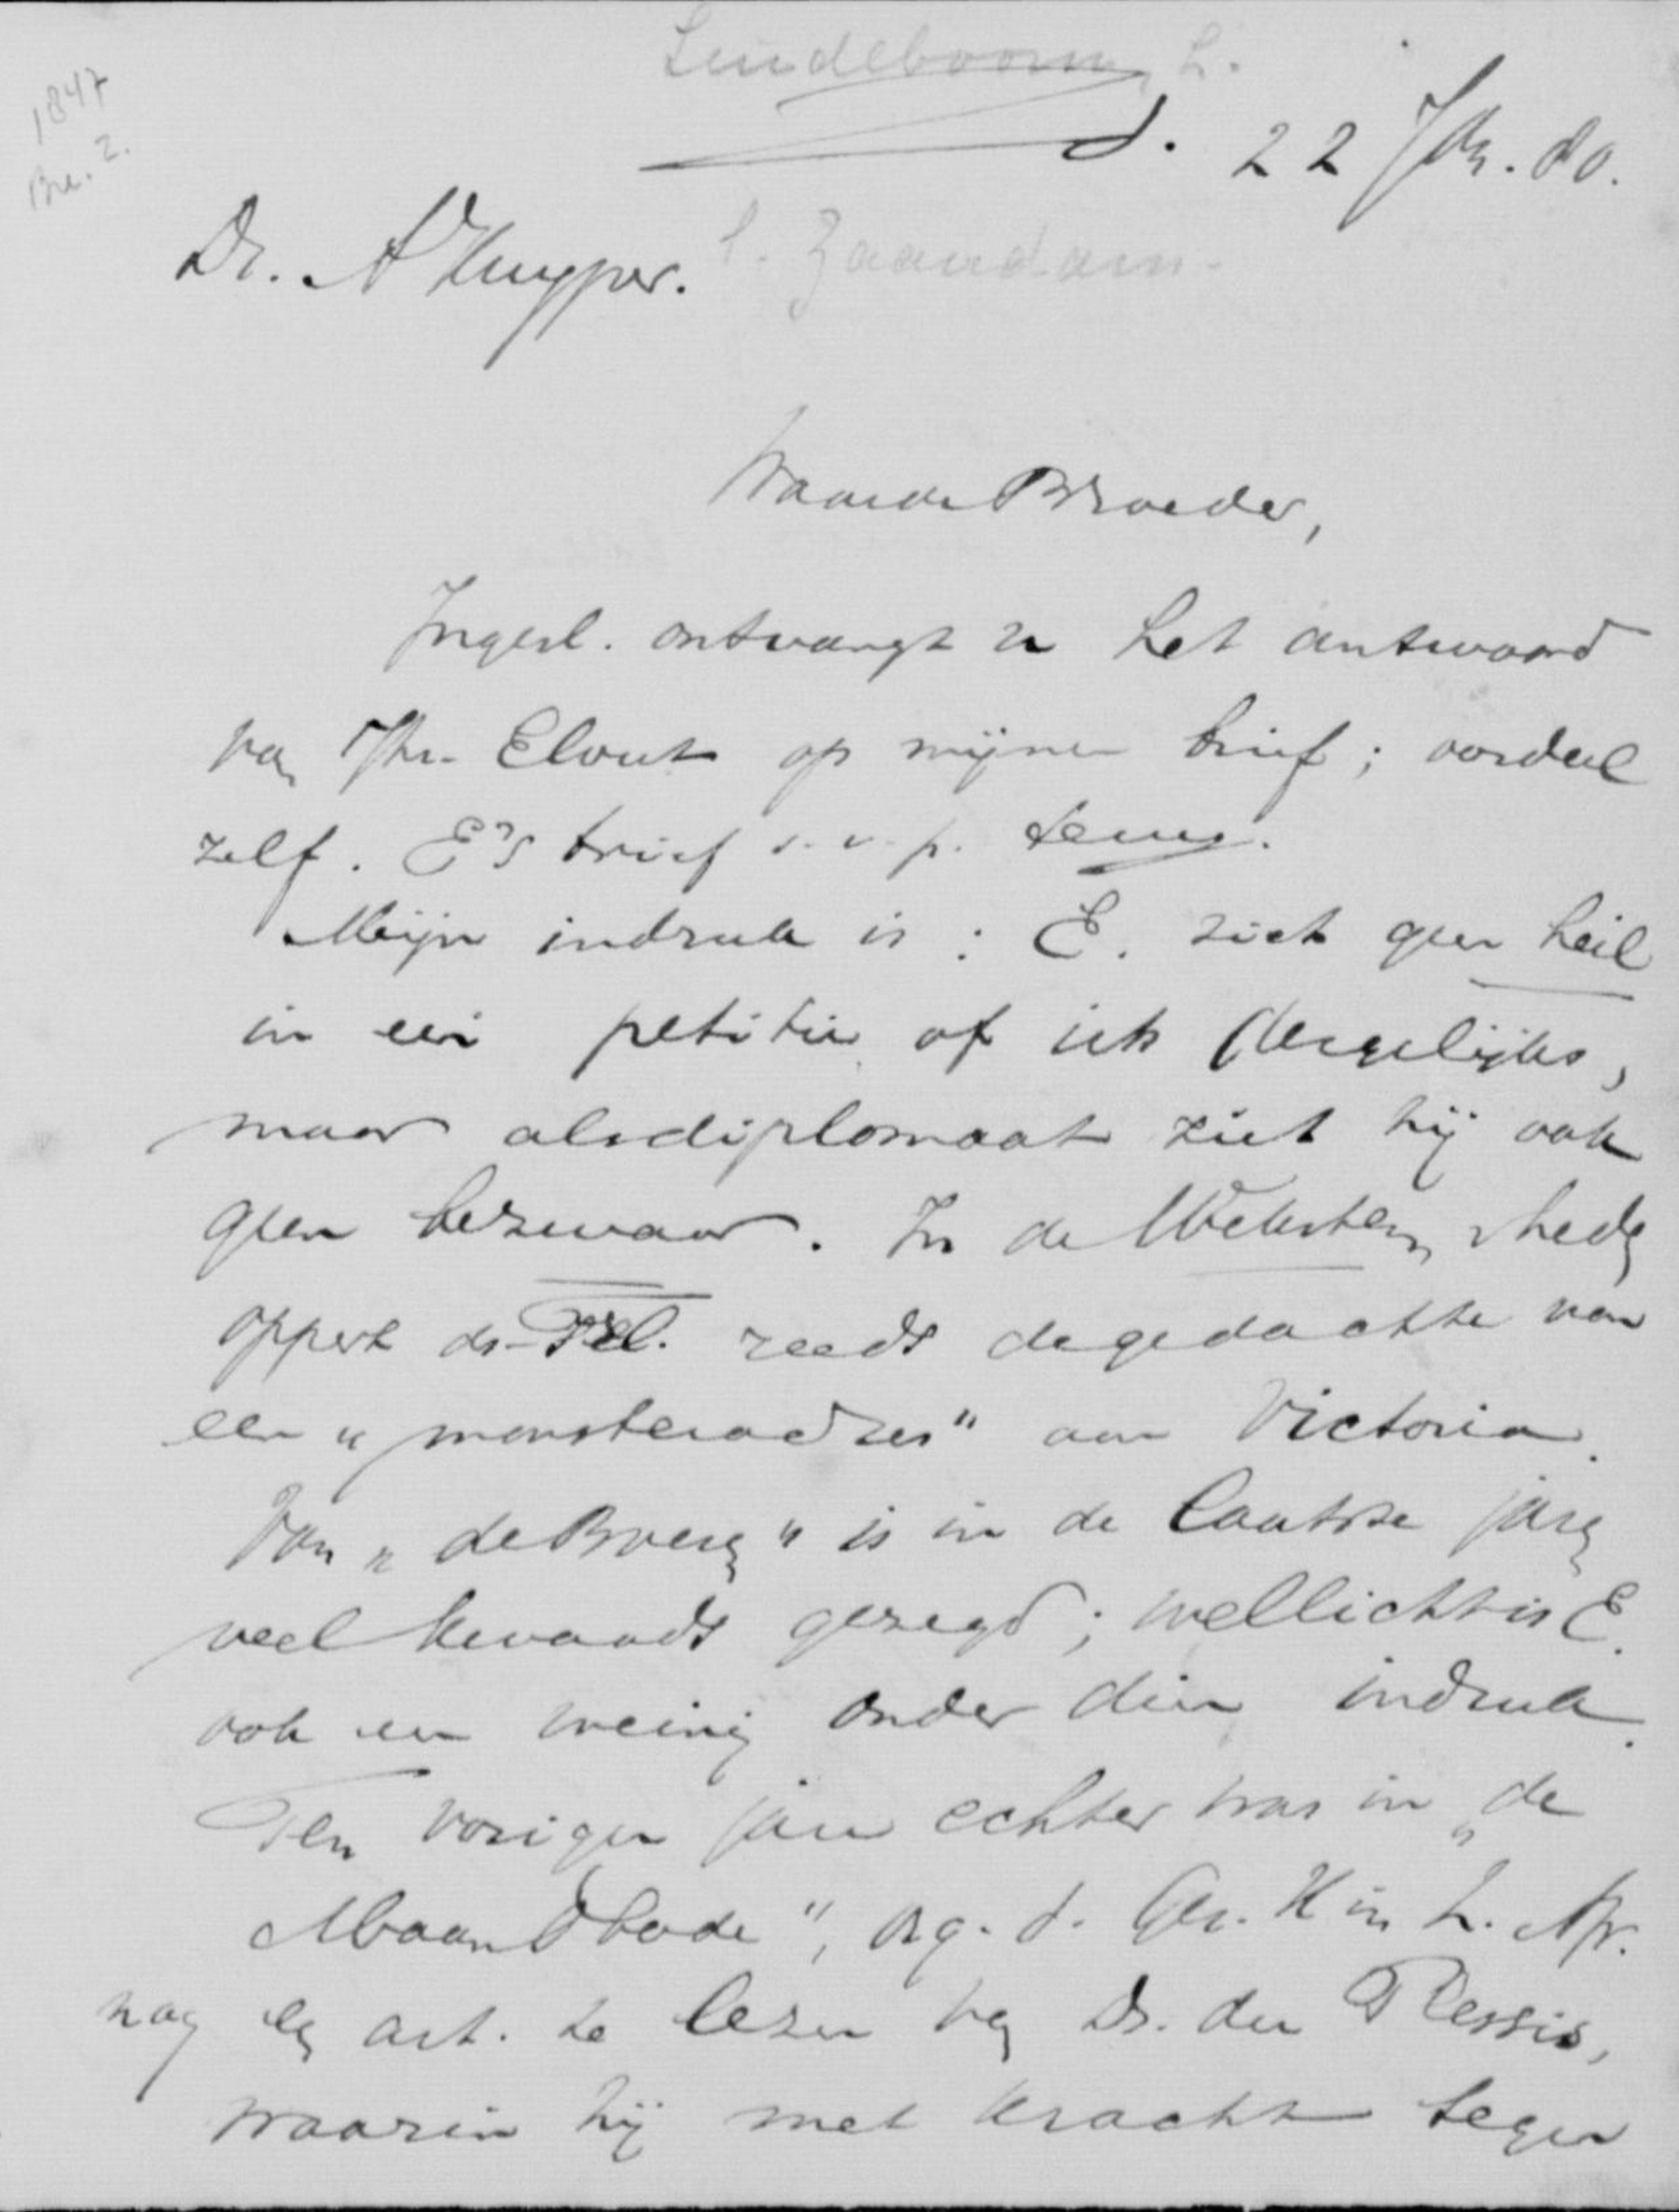 Lindeboom, L.
1847
Br. 2.
d. 22 Jan. 80.
Dr. A Kuyper.
l. Zaandam.
Waarde Broeder,
Ingesl. ontvangt u het antwoord
van Jhr. Elout op mijnen brief; oordeel
zelf. E's brief s.v.p. terug.
Mijn indruk is: E. ziet geen heil
in een petitie of iets dergelijks,
maar als diplomaat ziet hij ook
geen bezwaar. In de Westen
oppert ds. Fel. reeds de gedachte van
een "monsteradres" aan Victoria.
Van "de Boeren" is in de laatste jaren
veel kwaads gezegd; wellicht is E.
ook een weinig onder dien indruk.
Ten vorigen jare echter was in "de
Maandbode", org. d. Ger. K in Z. Afr.
nog een art. te lezen van Ds. du Plessis,
waarin hij met kracht tegen